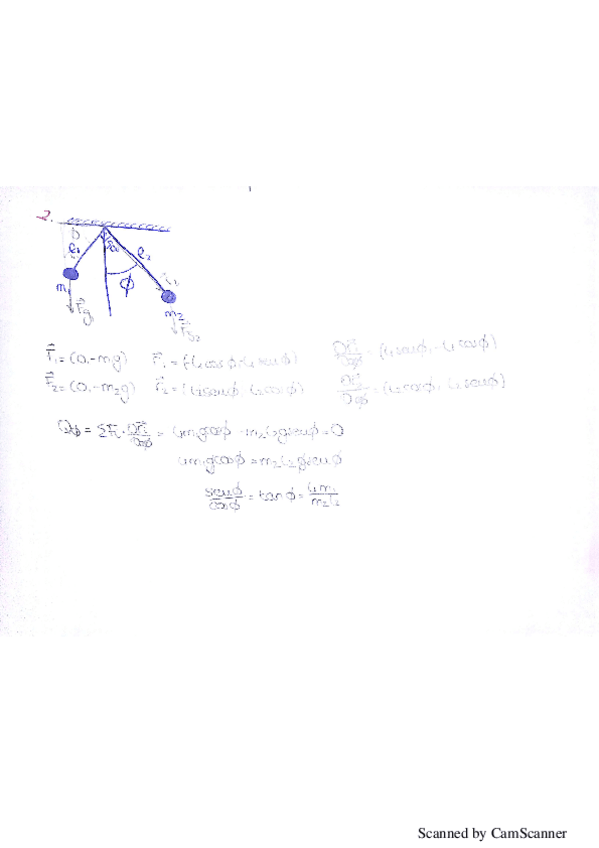 2.
D
l₁ 90 l₂
ϕ
m₁ m₂
F⃗g₁ F⃗g₂
F⃗₁ = (0, -m₁g) r⃗₁ = (-l₁cosϕ, -l₁senϕ) ∂r⃗₁/∂ϕ = (l₁senϕ, -l₁cosϕ)
F⃗₂ = (0, -m₂g) r⃗₂ = (l₂senϕ, -l₂cosϕ) ∂r⃗₂/∂ϕ = (l₂cosϕ, l₂senϕ)
Qϕ = ΣF⃗ᵢ · ∂r⃗ᵢ/∂ϕ = l₁m₁gcosϕ - m₂l₂gsenϕ = 0
l₁m₁gcosϕ = m₂l₂gsenϕ
senϕ/cosϕ = tanϕ = l₁m₁/m₂l₂
Scanned by CamScanner